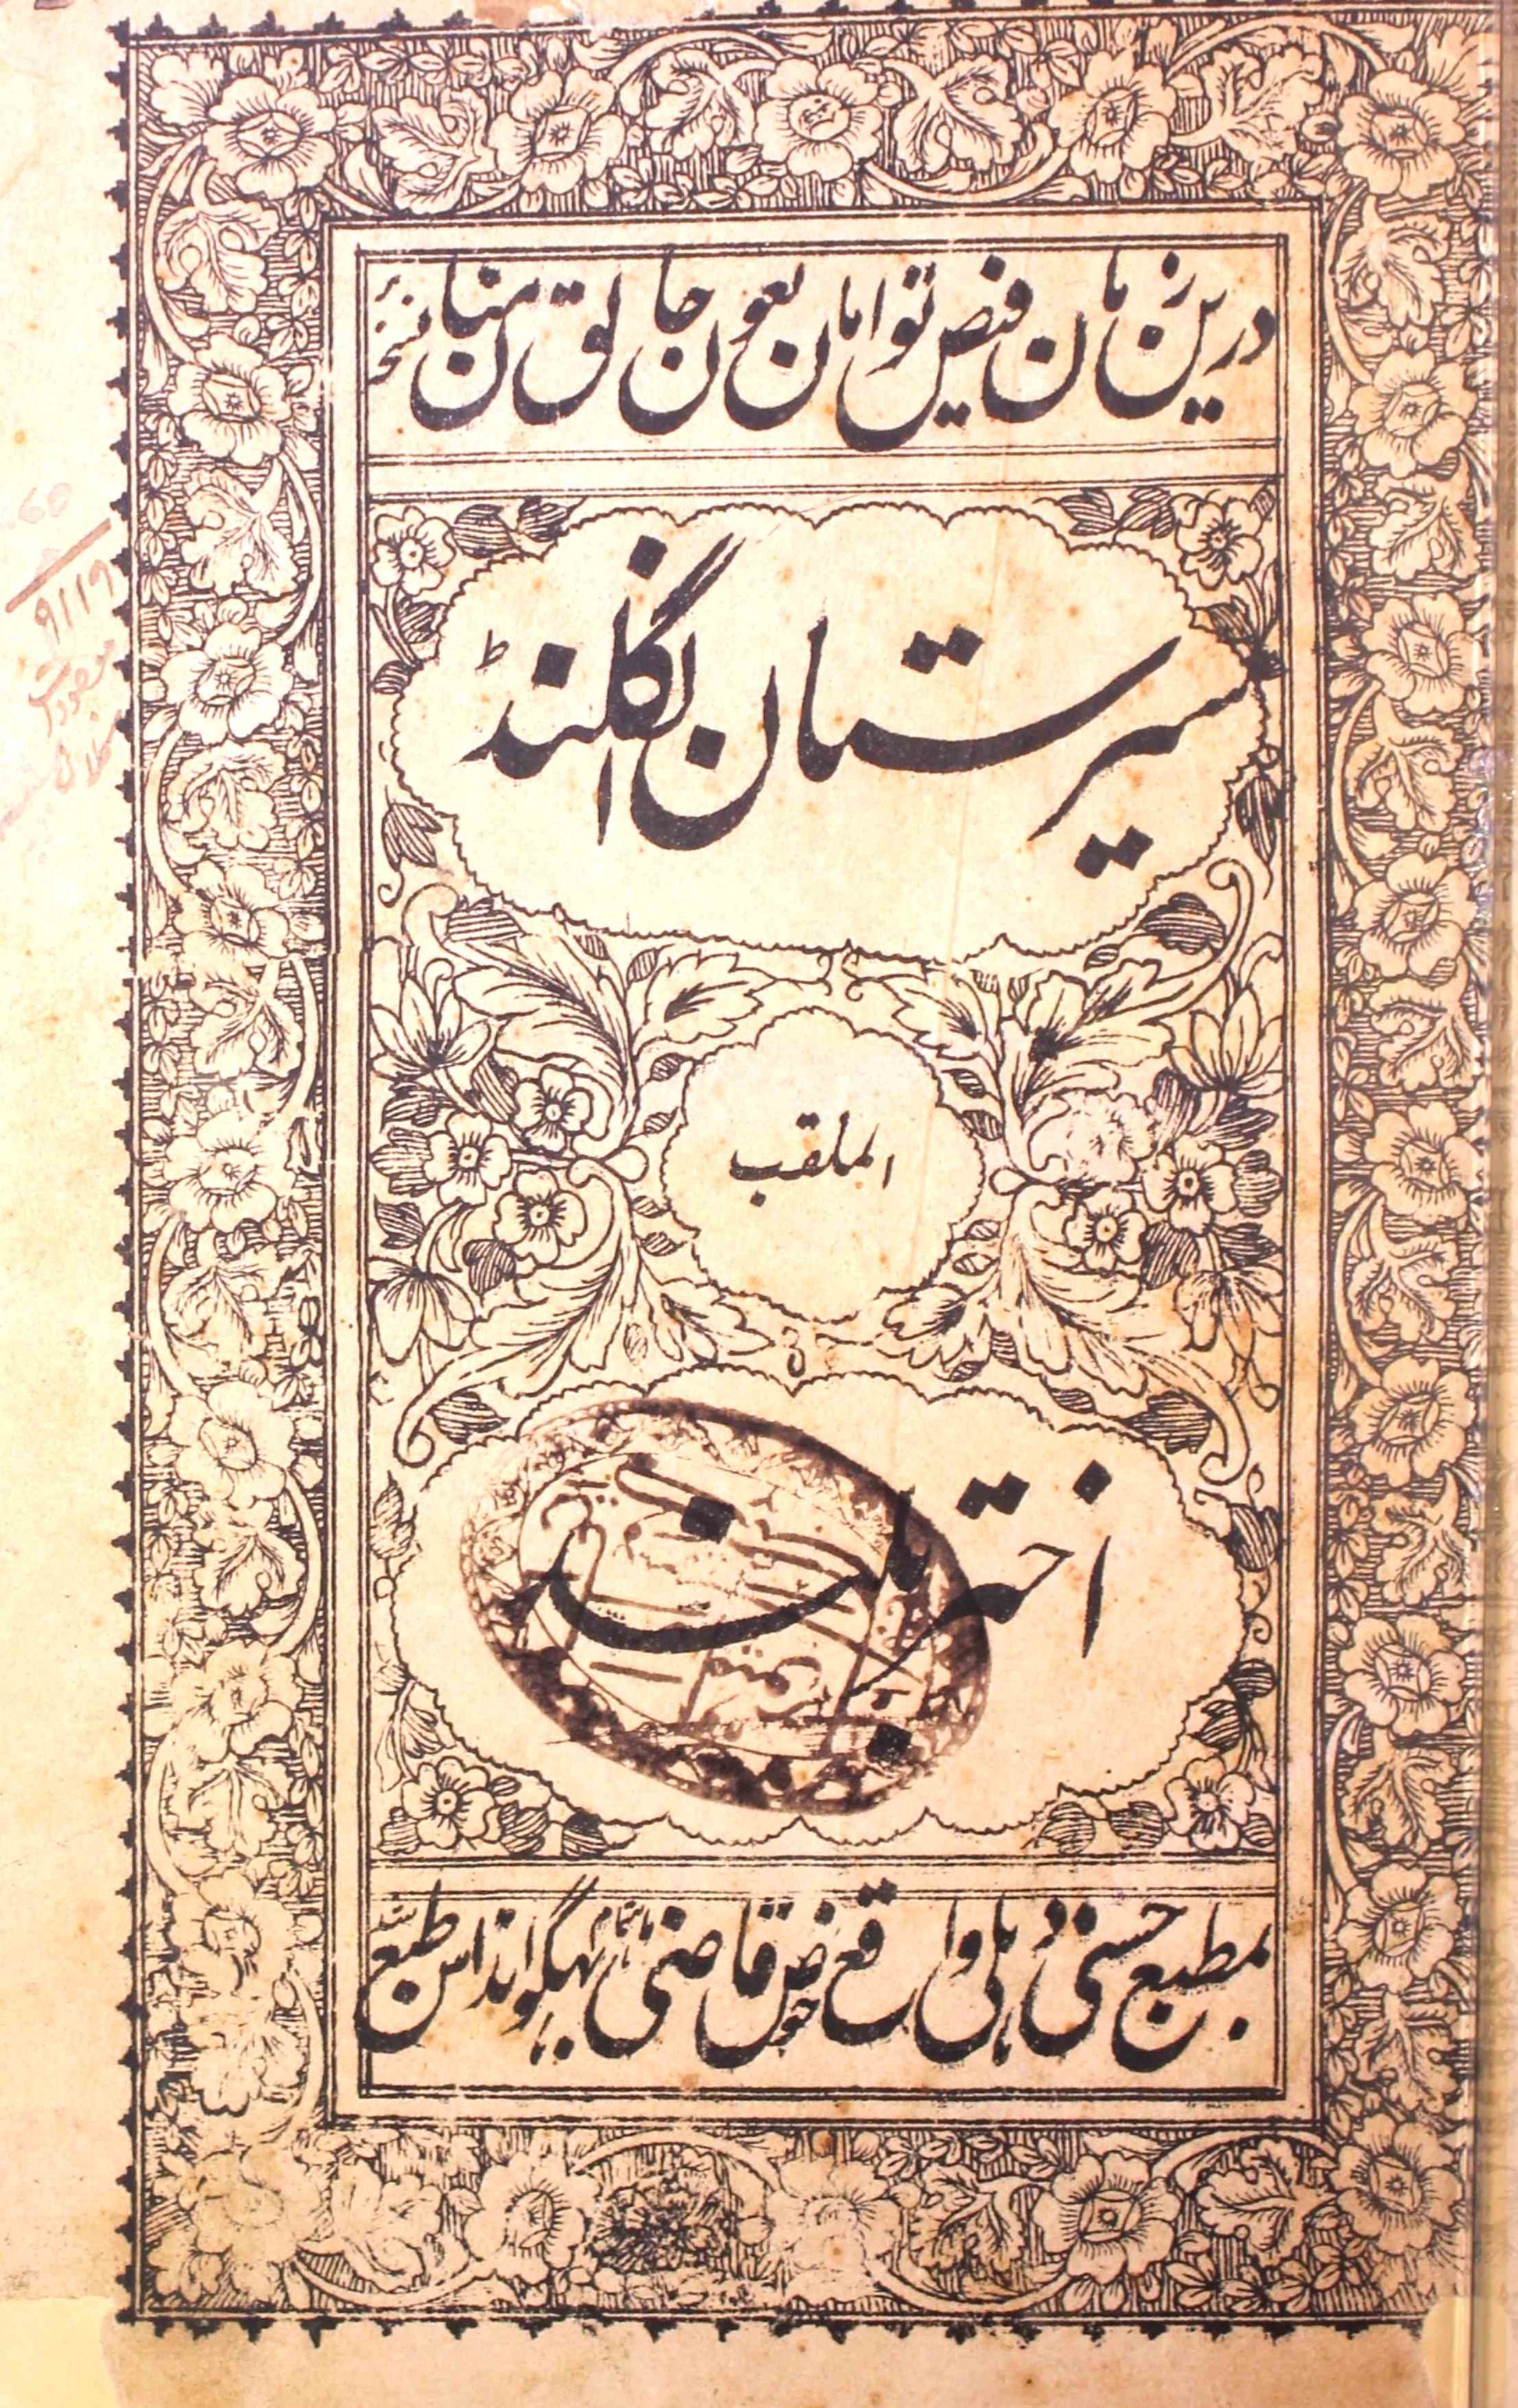 درین زمان فیض توامان بعون خالق منان نسخہ
سیرستان انگلنڈ
الملقب
اختر بلند
بمطبع حسنی دہلی واقع حوض قاضی باہتمام بھگواندس طبع شد
۹۱۱۹